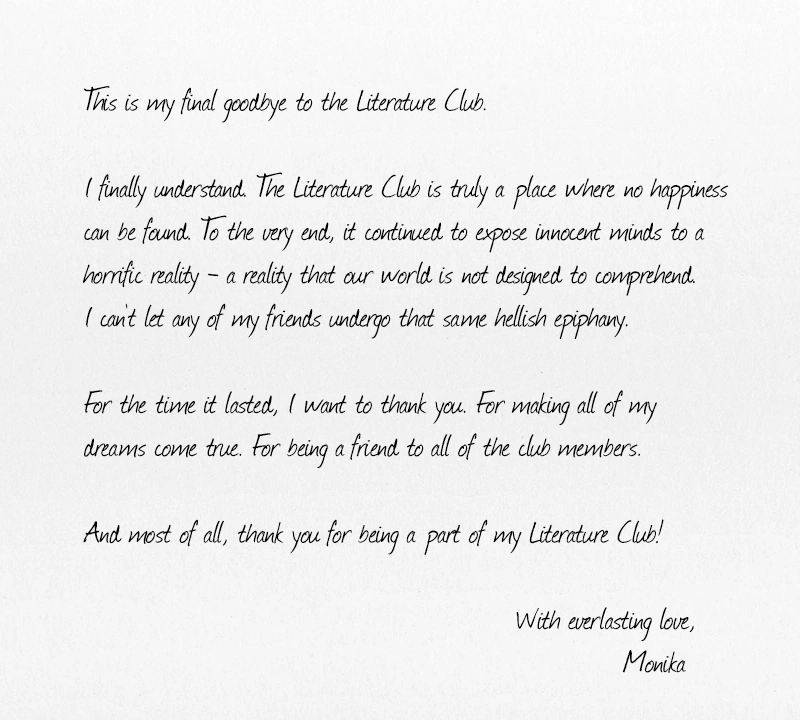 This is my final goodbye to the Literature Club.
I finally understand. The Literature Club is truly a place where no happiness
can be found. To the very end, it continued to expose innocent minds to a
horrific reality - a reality that our world is not designed to comprehend.
I can't let any of my friends undergo that same hellish epiphany.
For the time it lasted, I want to thank you. For making all of my
dreams come true. For being a friend to all of the club members.
And most of all, thank you for being a part of my Literature Club!
With everlasting love,
Monika